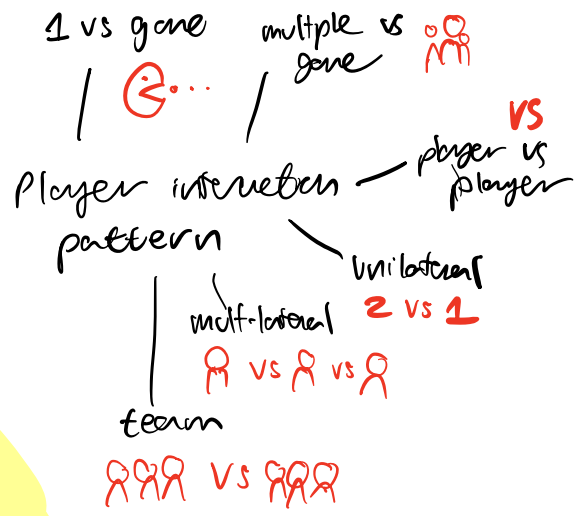 1 vs game
multiple vs
game
VS
player vs
player
Player interaction
pattern
unilateral
2 vs 1
mult-lateral
vs vs
team
vs